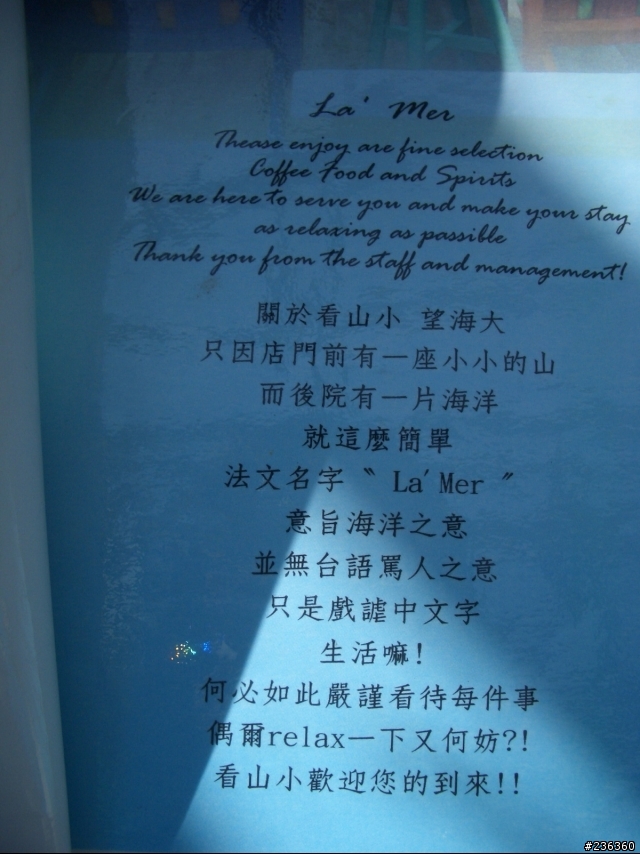 La' Mer
Thease enjoy are fine selection
Coffee Food and Spirits
We are here to serve you and make your stay
as relaxing as passible
Thank you from the staff and management!
關於看山小 望海大
只因店門前有一座小小的山
而後院有一片海洋
就這麼簡單
法文名字〝 La'Mer 〞
意旨海洋之意
並無台語罵人之意
只是戲謔中文字
生活嘛!
何必如此嚴謹看待每件事
偶爾relax一下又何妨?!
看山小歡迎您的到來!!
#236360